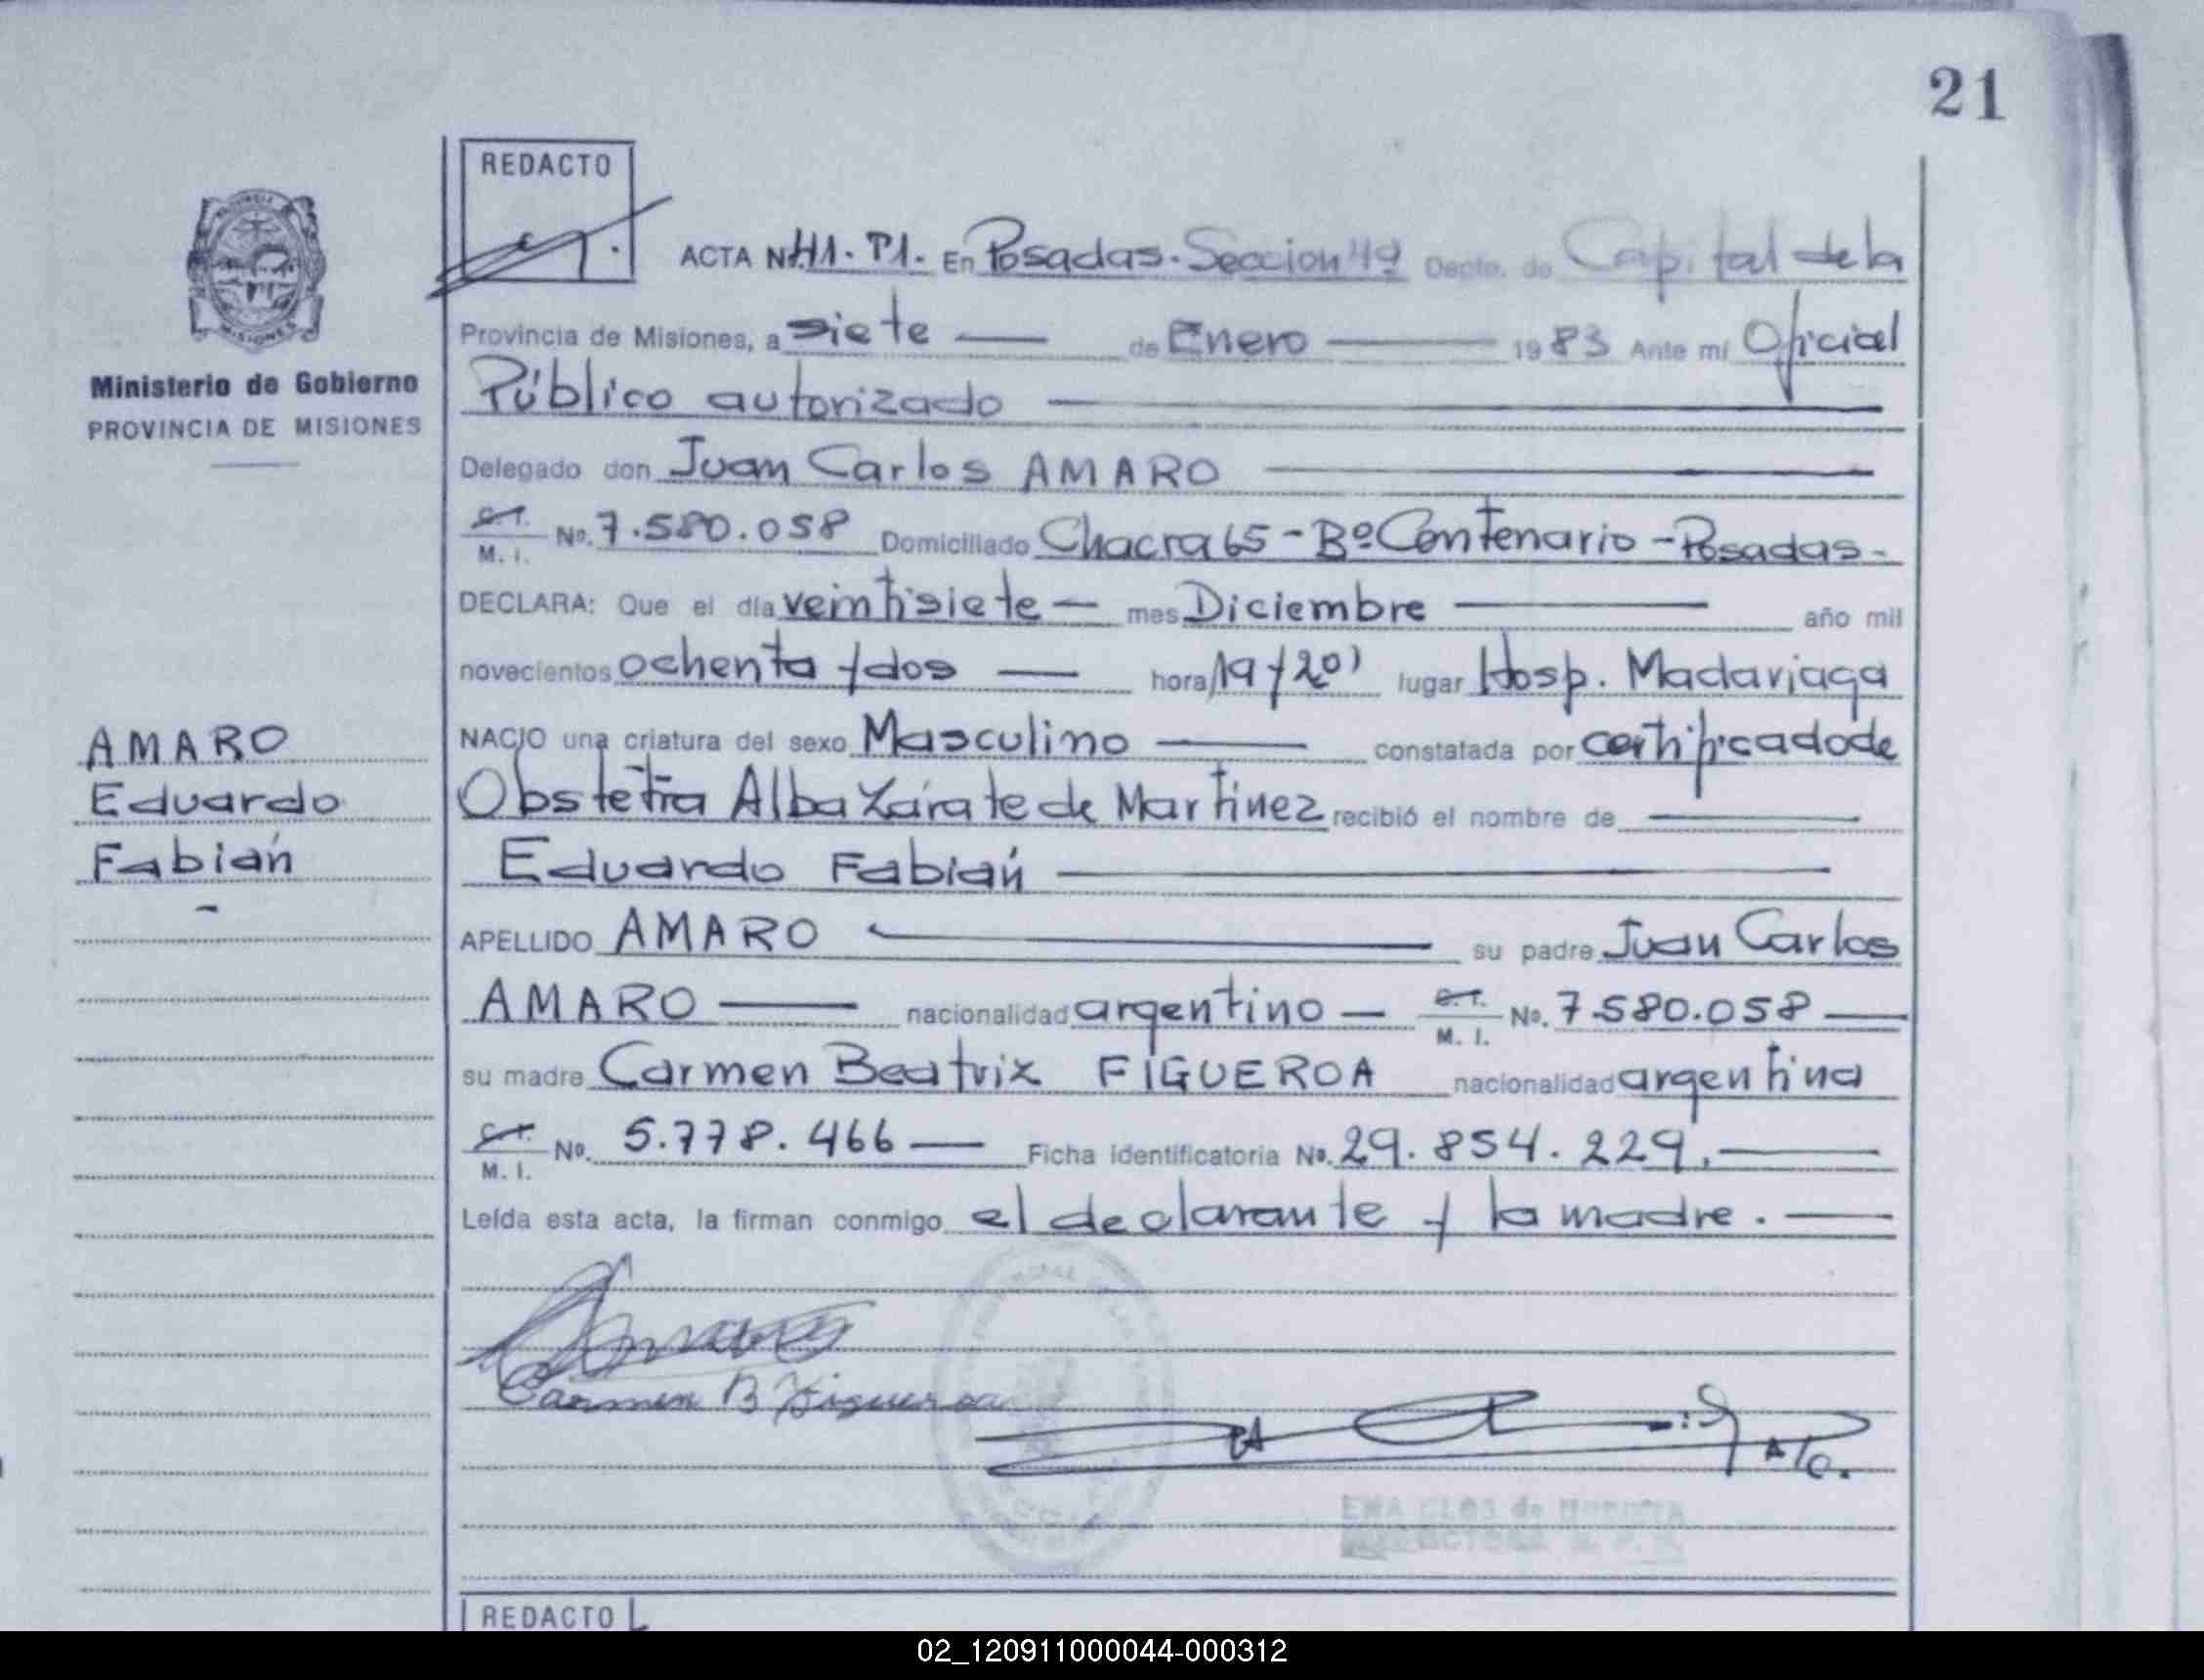 21
REDACTO
ACTA Nº 41. P1. En Posadas. Seccion 4ª Depto. de Capital de la
Provincia de Misiones, a siete — de Enero — 1983 Ante mí Oficial
Público autorizado —
Delegado don Juan Carlos AMARO —
C.I. M. I. Nº. 7.580.058 Domiciliado Chacra 65 - Bº Centenario - Posadas-
DECLARA: Que el día veintisiete — mes Diciembre — año mil
novecientos ochenta y dos — hora 19 y 20' lugar Hosp. Madariaga
NACIO una criatura del sexo Masculino — constatada por certificado de
Obstetra Alba Zárate de Martinez recibió el nombre de —
Eduardo Fabián —
APELLIDO AMARO — su padre Juan Carlos
AMARO — nacionalidad argentino — C.I. M. I. Nº. 7.580.058 —
su madre Carmen Beatriz FIGUEROA nacionalidad argentina
C.I. M. I. Nº. 5.778.466 — Ficha identificatoria Nº. 29.854.229. —
Leída esta acta, la firman conmigo el declarante y la madre. —
Carmen B Figueroa
A/C.
REDACTO
Ministerio de Gobierno
PROVINCIA DE MISIONES
AMARO
Eduardo
Fabián
-
02_120911000044-000312